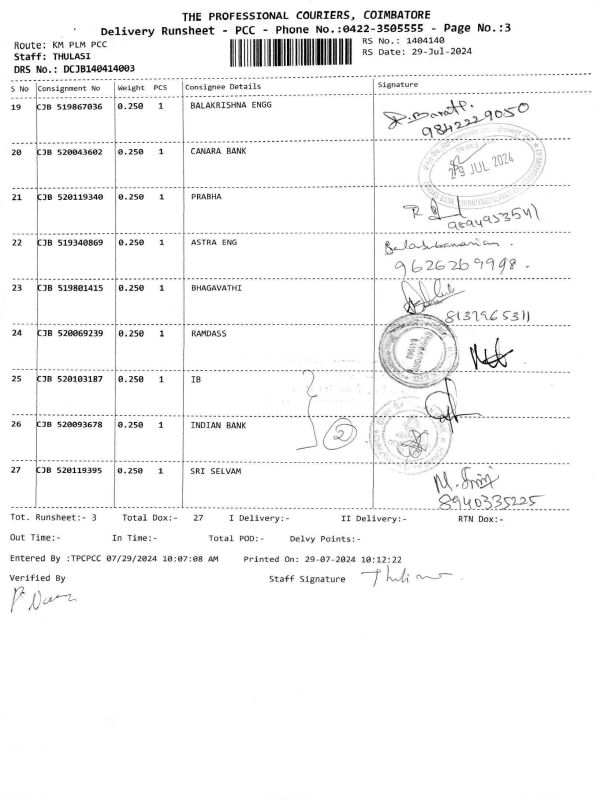 THE PROFESSIONAL COURIERS, COIMBATORE
Delivery Runsheet - PCC - Phone No.:0422-3505555 - Page No.:3
Route: KM PLM PCC
RS No.: 1404140
Staff: THULASI
RS Date: 29-Jul-2024
DRS No.: DCJB140414003
S No Consignment No Weight PCS Consignee Details Signature
19 CJB 519867036 0.250 1 BALAKRISHNA ENGG
9842229050
20 CJB 520043602 0.250 1 CANARA BANK
29 JUL 2024
21 CJB 520119340 0.250 1 PRABHA
9894953541
22 CJB 519340869 0.250 1 ASTRA ENG
9626269998.
23 CJB 519801415 0.250 1 BHAGAVATHI
8137965311
24 CJB 520069239 0.250 1 RAMDASS
25 CJB 520103187 0.250 1 IB
26 CJB 520093678 0.250 1 INDIAN BANK
2
27 CJB 520119395 0.250 1 SRI SELVAM
8940335225
Tot. Runsheet:- 3 Total Dox:- 27 I Delivery:- II Delivery:- RTN Dox:-
Out Time:- In Time:- Total POD:- Delvy Points:-
Entered By :TPCPCC 07/29/2024 10:07:08 AM Printed On: 29-07-2024 10:12:22
Verified By Staff Signature